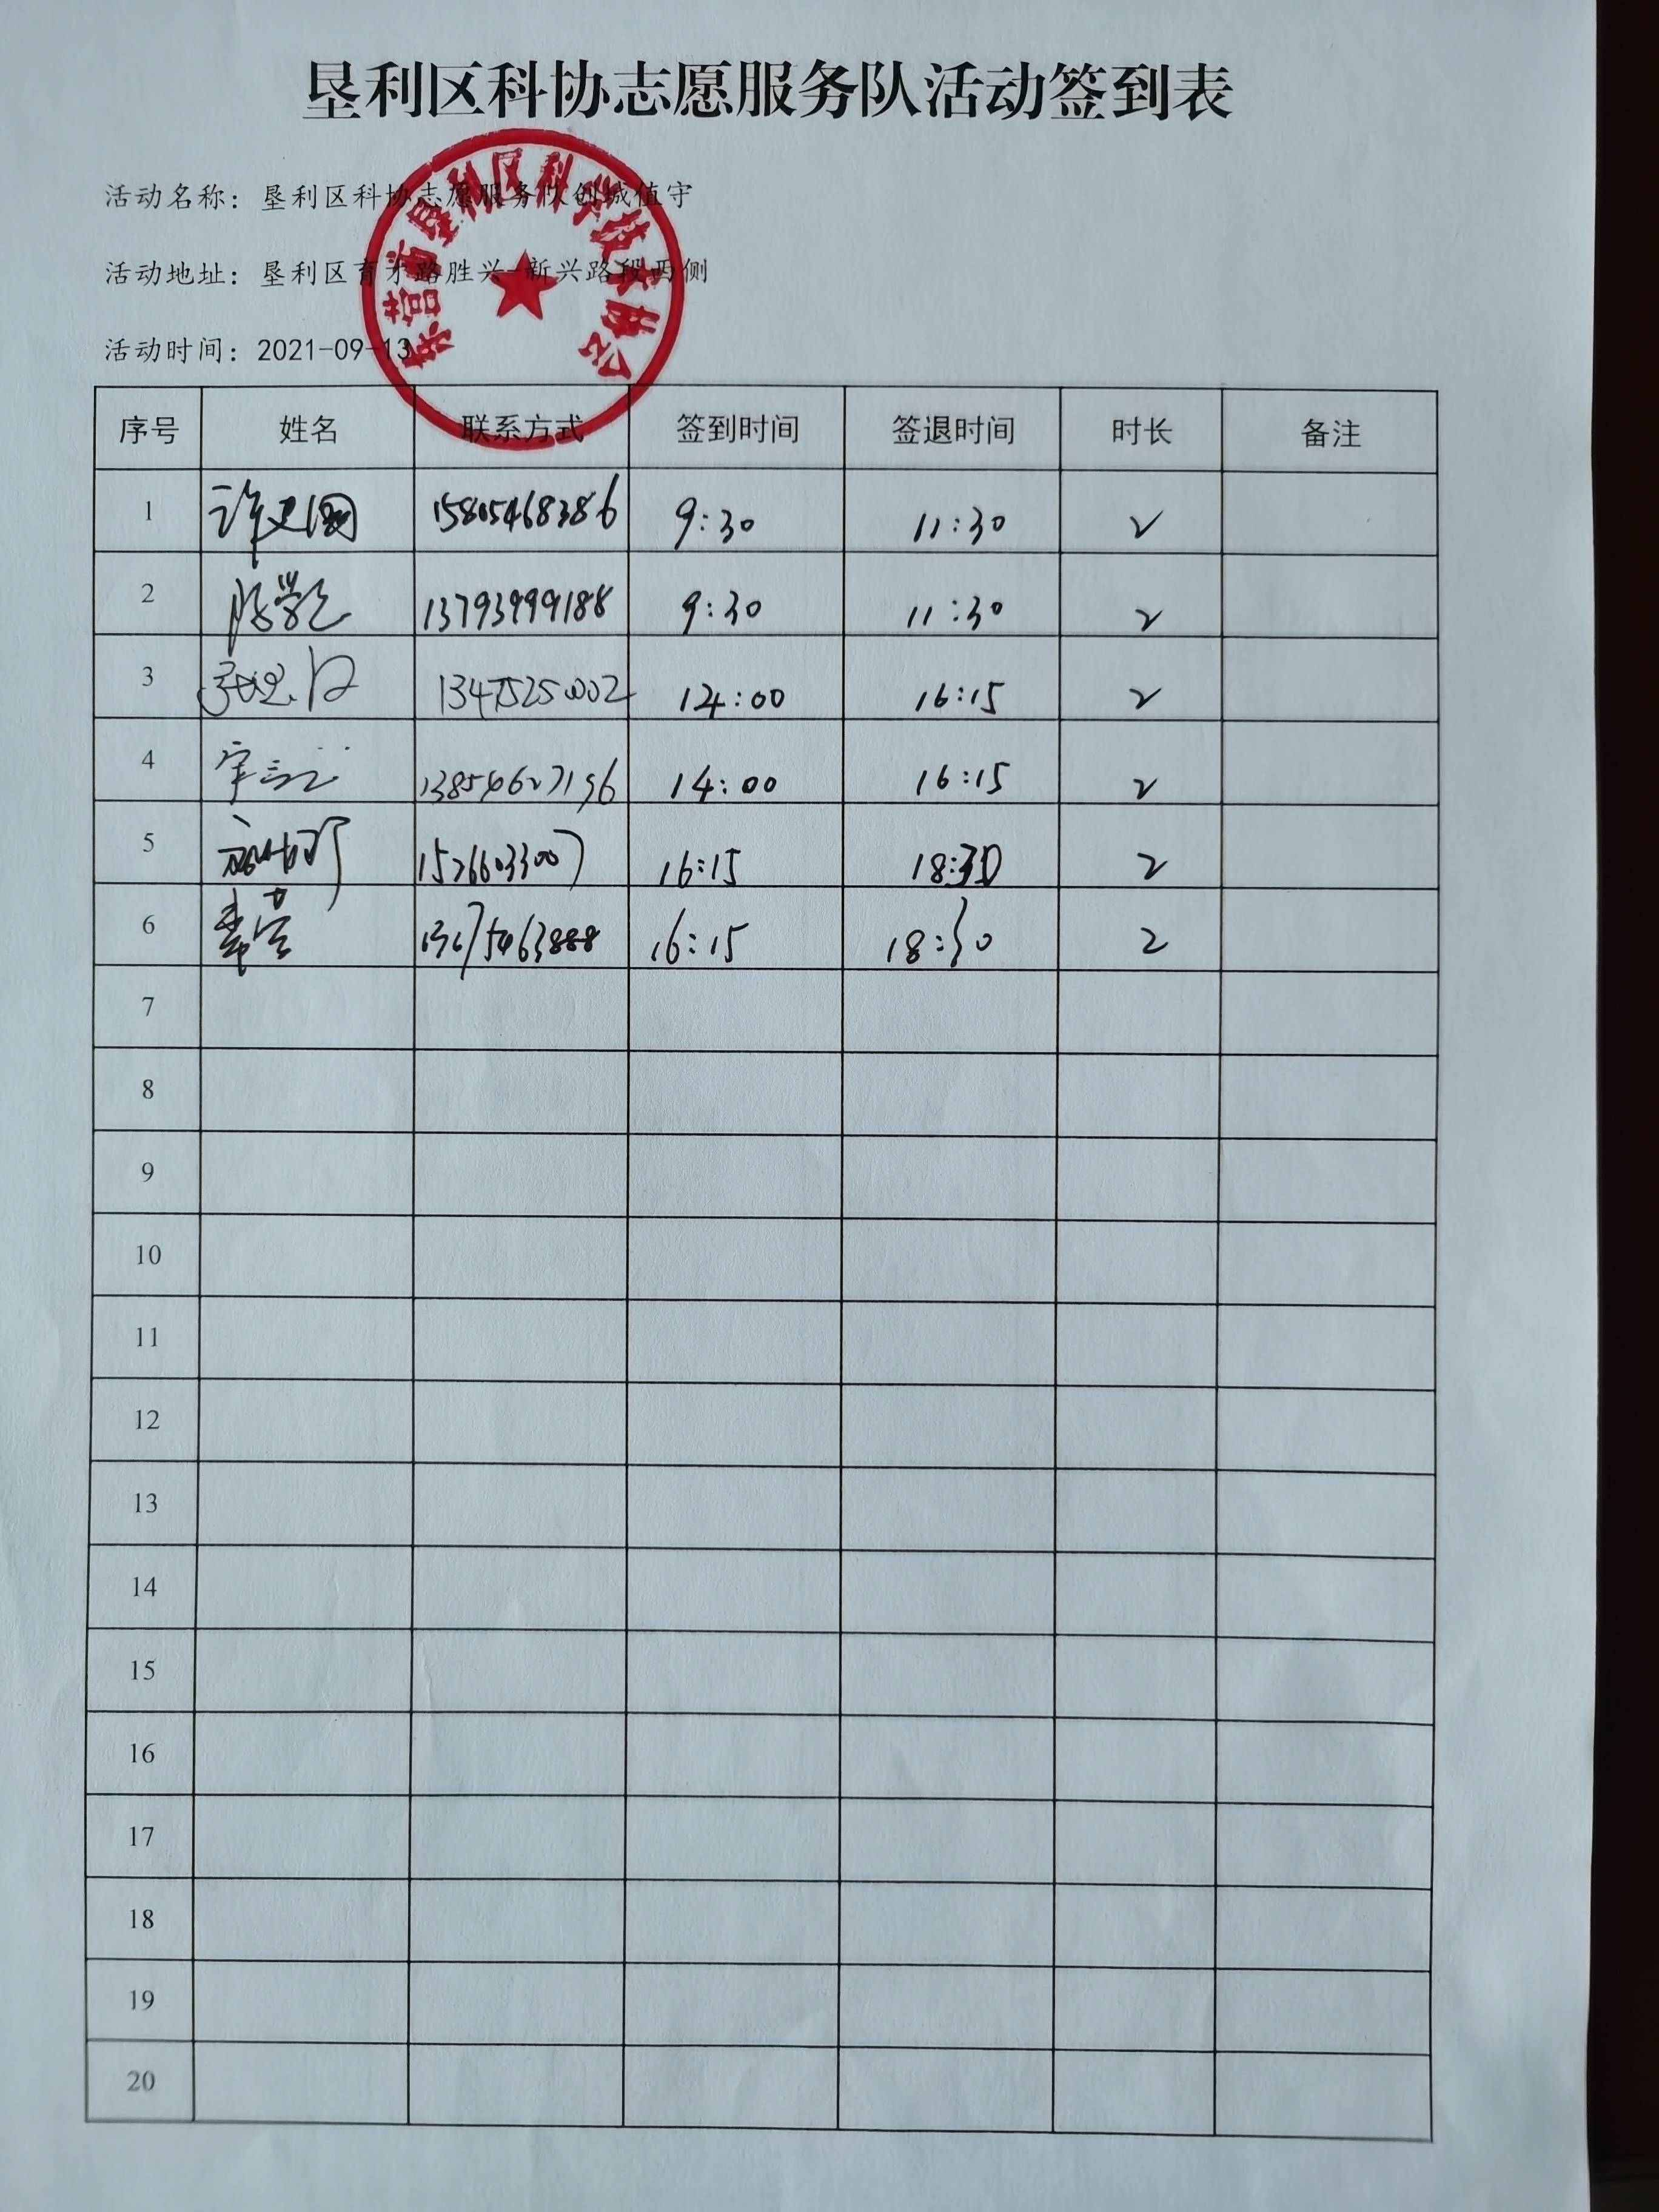 垦利区科协志愿服务队活动签到表
东营市垦利区科学技术协会
活动名称：垦利区科协志愿服务队创城值守
活动地址：垦利区育才路胜兴-新兴路段西侧
活动时间：2021-09-13
序号 姓名 联系方式 签到时间 签退时间 时长 备注
1 15805468386 9:30 11:30 2
2 13793999188 9:30 11:30 2
3 1347525002 14:00 16:15 2
4 13854627196 14:00 16:15 2
5 15266033007 16:15 18:30 2
6 16:15 18:30 2
7
8
9
10
11
12
13
14
15
16
17
18
19
20